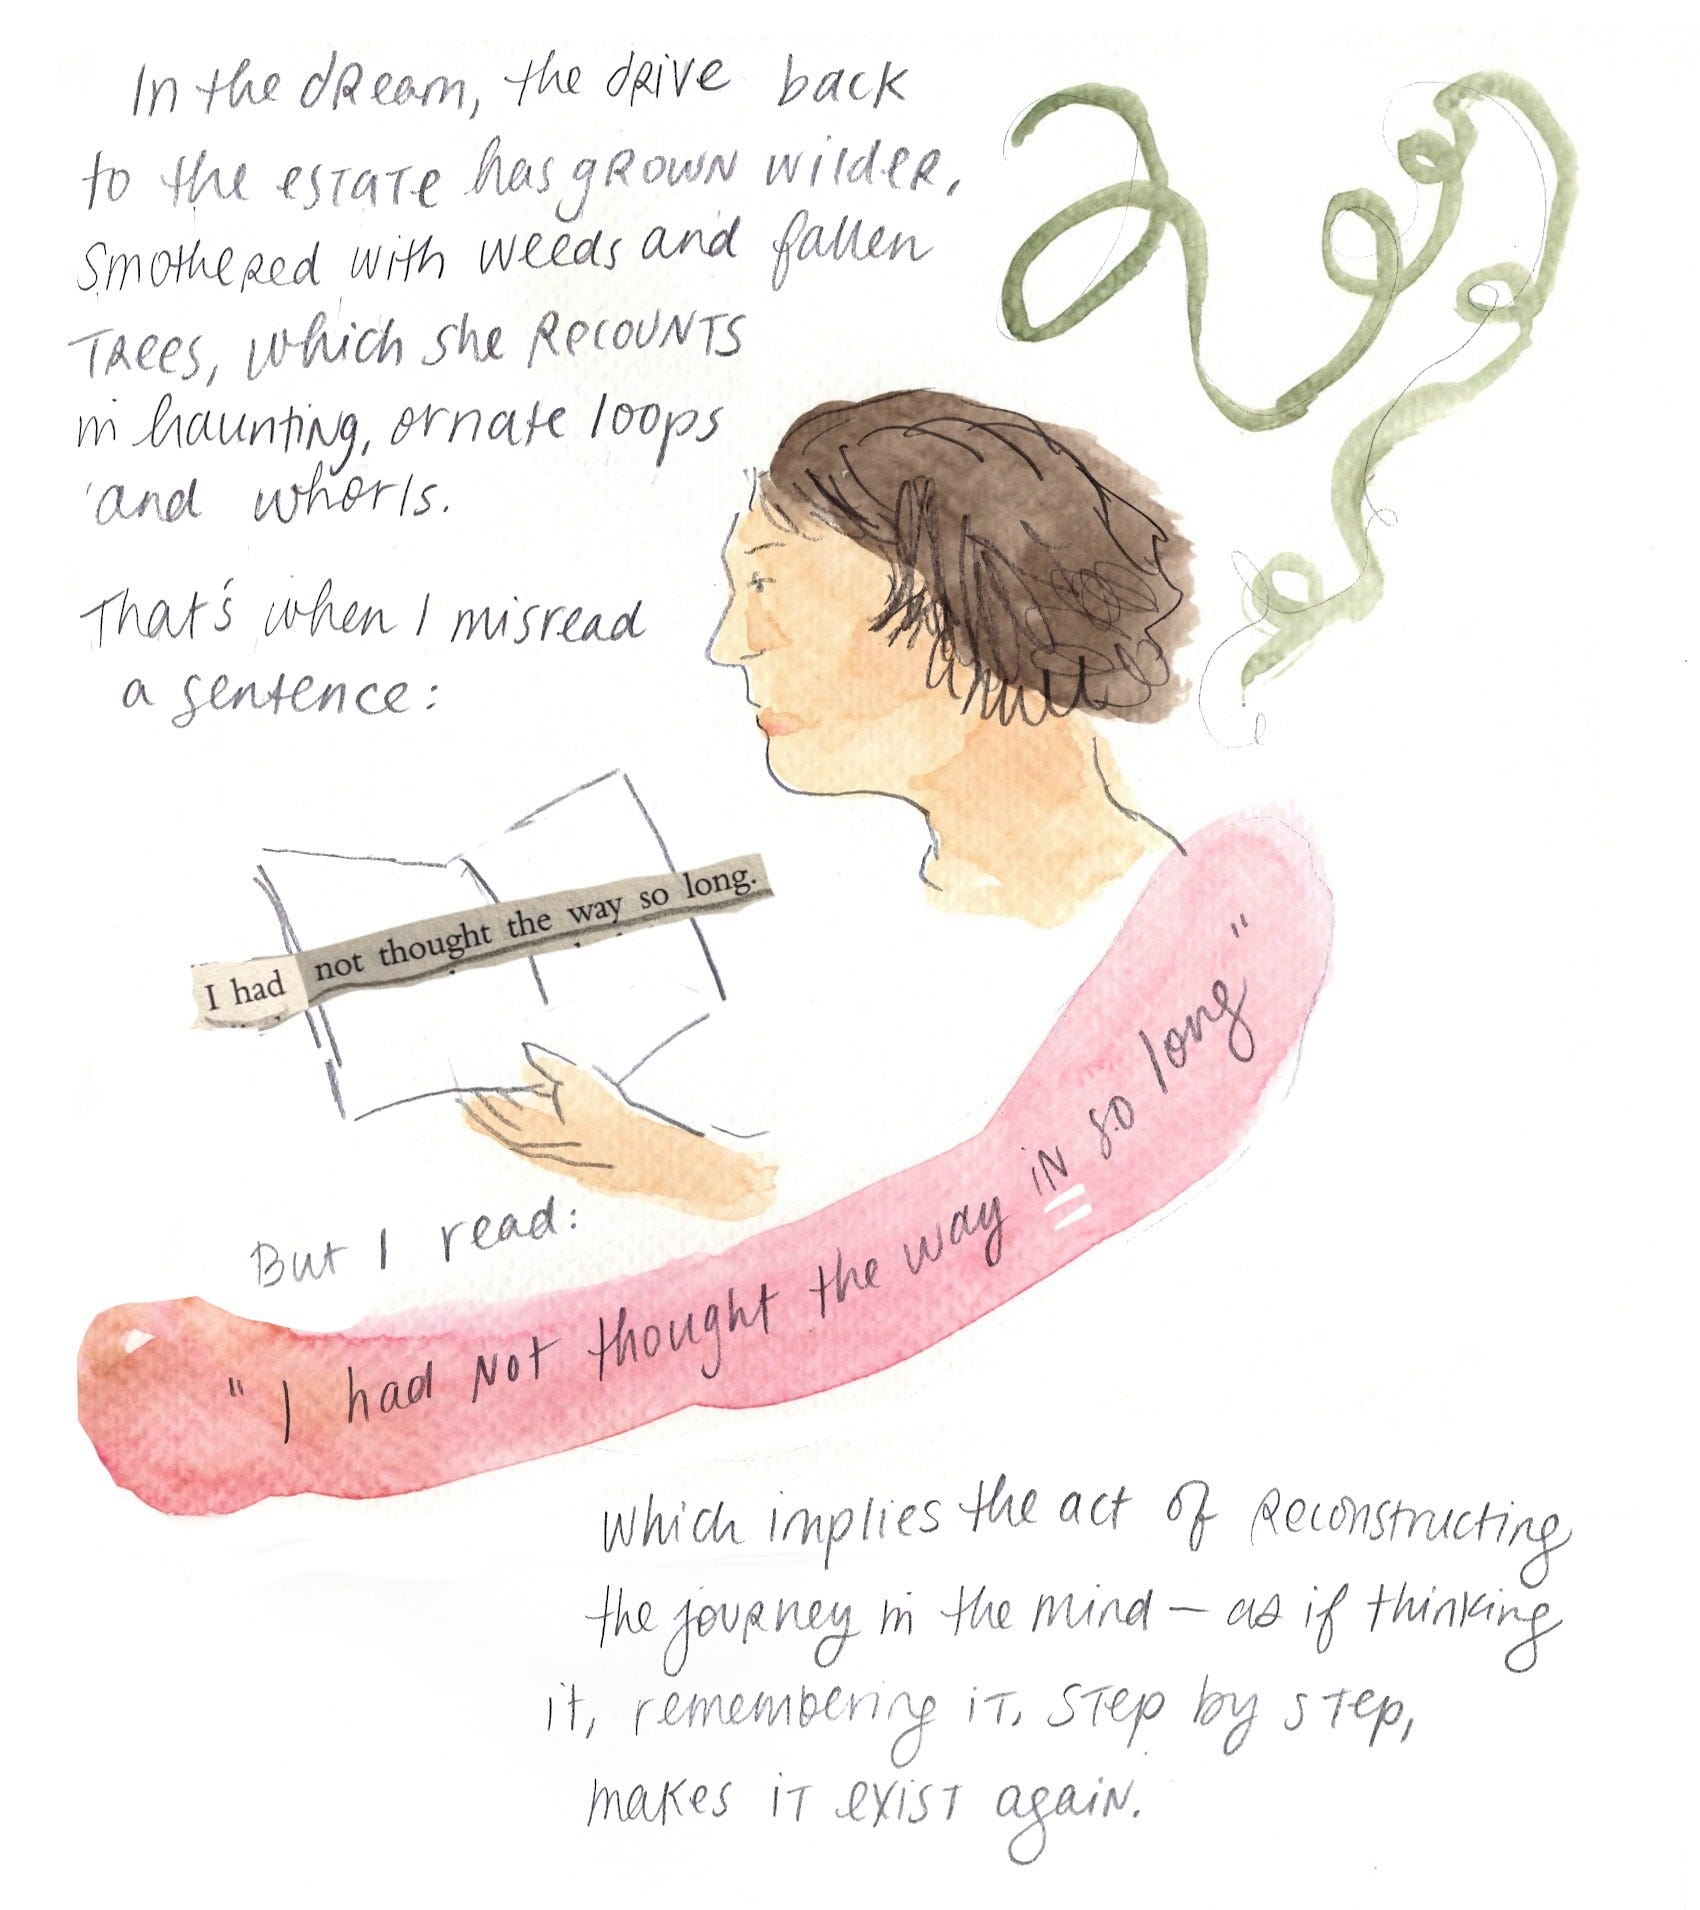 In the dream, the drive back
to the estate has grown wilder,
smothered with weeds and fallen
trees, which she recounts
in haunting, ornate loops
and whorls.
That's when I misread
a sentence:
I had not thought the way so long.
But I read:
"I had not thought the way in so long"
which implies the act of reconstructing
the journey in the mind — as if thinking
it, remembering it, step by step,
makes it exist again.